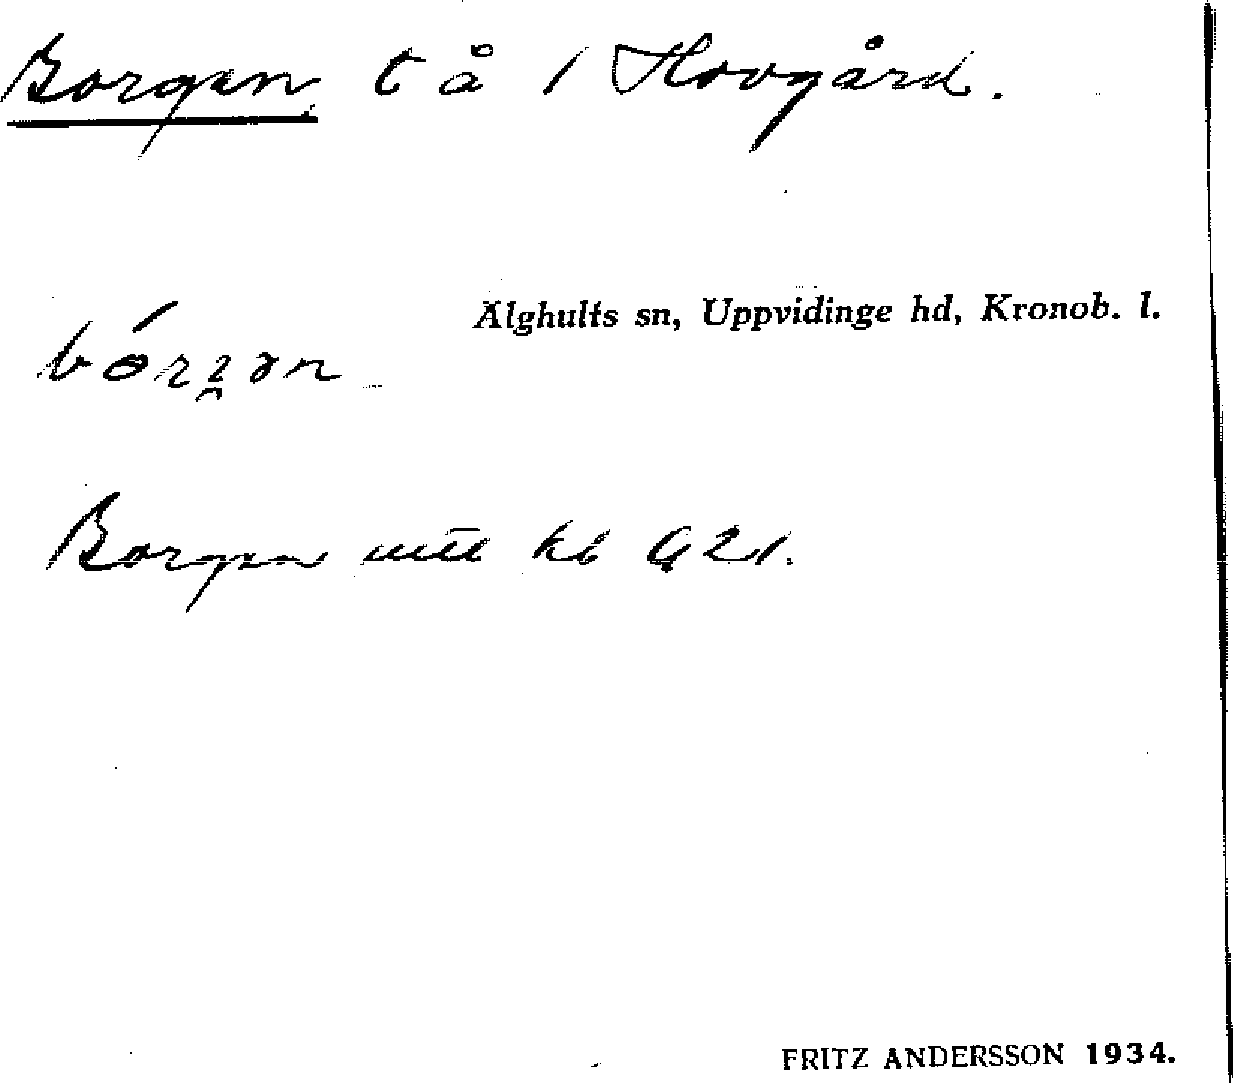 Borgen t å 1 Hovgård.
Älghults sn, Uppvidinge hd, Kronob. l.
Borgen kb
FRITZ ANDERSSON 1934.